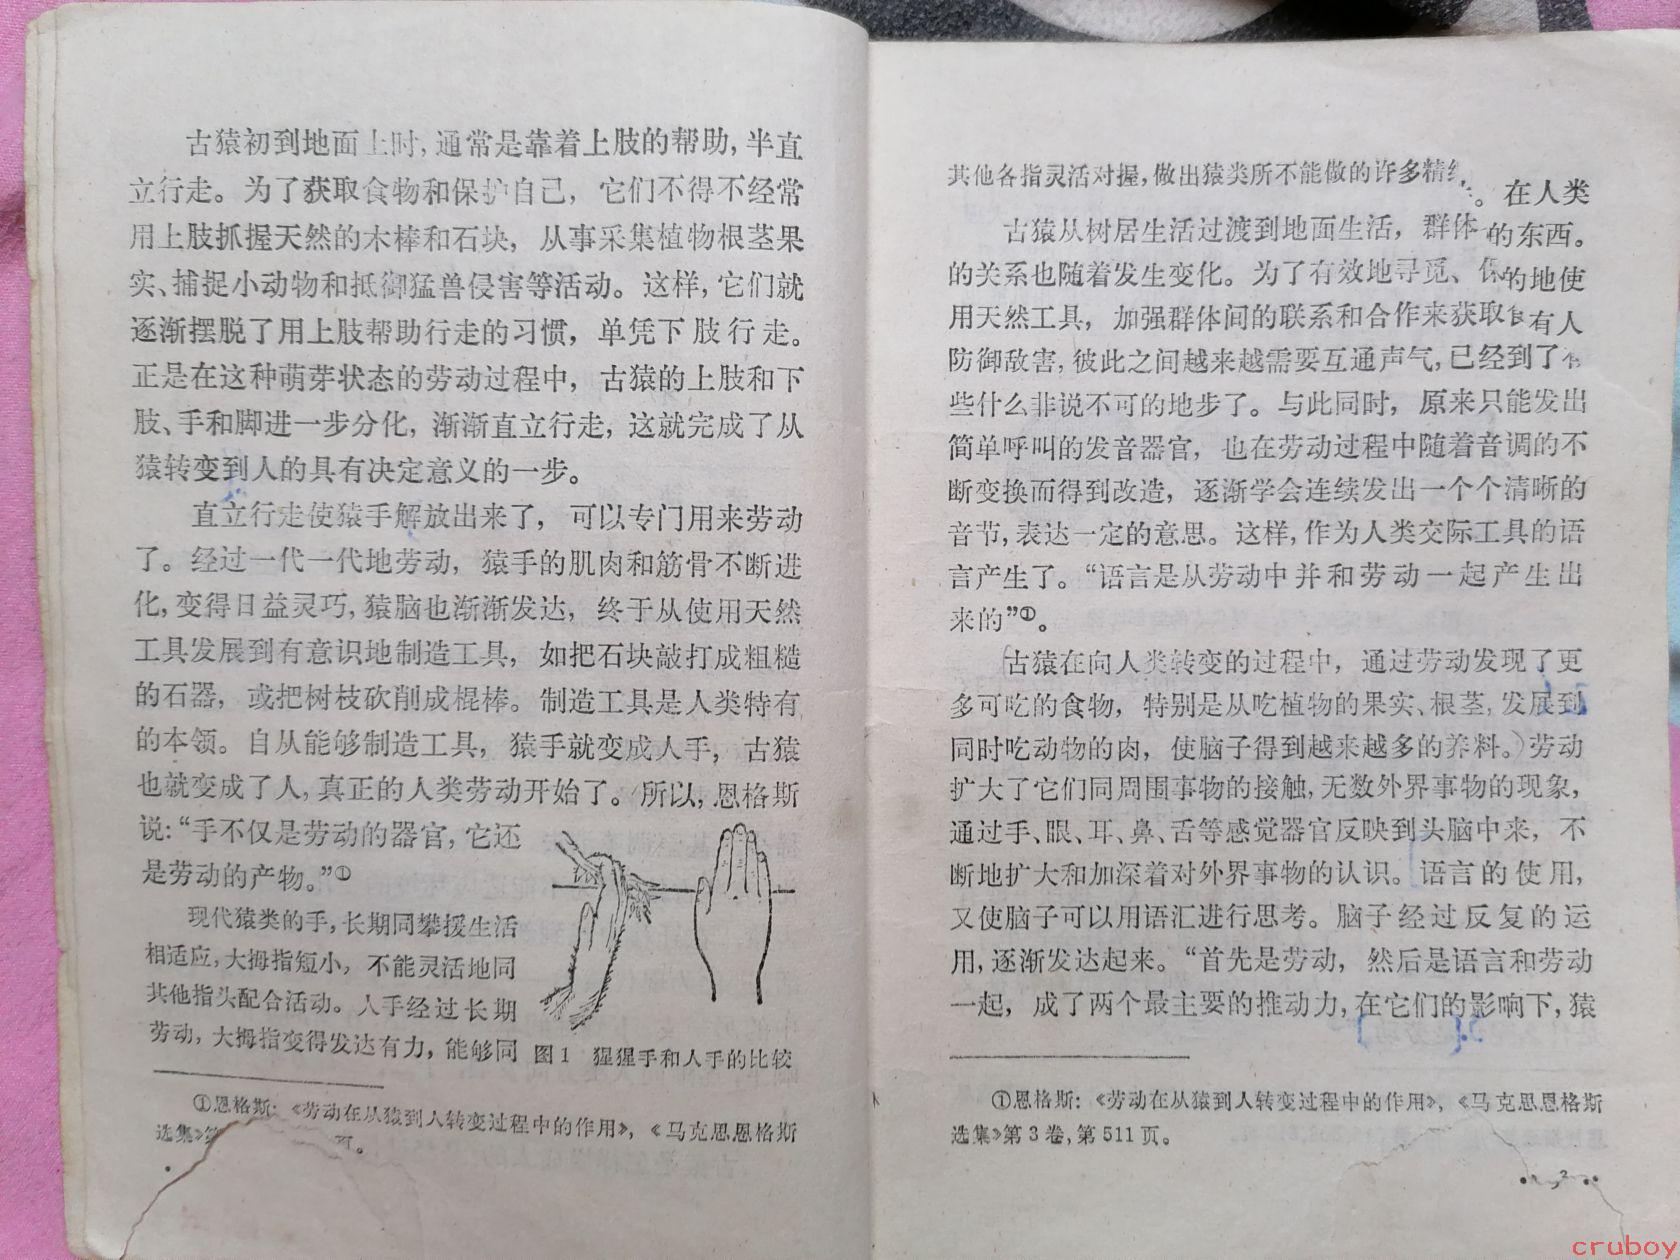 古猿初到地面上时，通常是靠着上肢的帮助，半直
立行走。为了获取食物和保护自己，它们不得不经常
用上肢抓握天然的木棒和石块，从事采集植物根茎果
实、捕捉小动物和抵御猛兽侵害等活动。这样，它们就
逐渐摆脱了用上肢帮助行走的习惯，单凭下肢行走。
正是在这种萌芽状态的劳动过程中，古猿的上肢和下
肢、手和脚进一步分化，渐渐直立行走，这就完成了从
猿转变到人的具有决定意义的一步。
直立行走使猿手解放出来了，可以专门用来劳动
了。经过一代一代地劳动，猿手的肌肉和筋骨不断进
化，变得日益灵巧，猿脑也渐渐发达，终于从使用天然
工具发展到有意识地制造工具，如把石块敲打成粗糙
的石器，或把树枝砍削成棍棒。制造工具是人类特有
的本领。自从能够制造工具，猿手就变成人手，古猿
也就变成了人，真正的人类劳动开始了。所以，恩格斯
说：“手不仅是劳动的器官，它还
是劳动的产物。”①
现代猿类的手，长期同攀援生活
相适应，大拇指短小，不能灵活地同
其他指头配合活动。人手经过长期
劳动，大拇指变得发达有力，能够同
图1 猩猩手和人手的比较
①恩格斯：《劳动在从猿到人转变过程中的作用》，《马克思恩格斯
选集》第 页。
其他各指灵活对握，做出猿类所不能做的许多精
。在人类
古猿从树居生活过渡到地面生活，群体
的东西。
的关系也随着发生变化。为了有效地寻觅、
的地使
用天然工具，加强群体间的联系和合作来获取
有人
防御敌害，彼此之间越来越需要互通声气，已经到了
些什么非说不可的地步了。与此同时，原来只能发出
简单呼叫的发音器官，也在劳动过程中随着音调的不
断变换而得到改造，逐渐学会连续发出一个个清晰的
音节，表达一定的意思。这样，作为人类交际工具的语
言产生了。“语言是从劳动中并和劳动一起产生出
来的”①。
古猿在向人类转变的过程中，通过劳动发现了更
多可吃的食物，特别是从吃植物的果实、根茎，发展到
同时吃动物的肉，使脑子得到越来越多的养料。）劳动
扩大了它们同周围事物的接触，无数外界事物的现象，
通过手、眼、耳、鼻、舌等感觉器官反映到头脑中来，不
断地扩大和加深着对外界事物的认识。语言的使用，
又使脑子可以用语汇进行思考。脑子经过反复的运
用，逐渐发达起来。“首先是劳动，然后是语言和劳动
一起，成了两个最主要的推动力，在它们的影响下，猿
①恩格斯：《劳动在从猿到人转变过程中的作用》，《马克思恩格斯
选集》第3卷，第511页。
cruboy